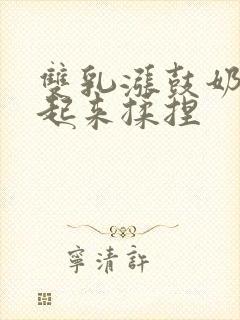 雙乳漲鼓奶
起来揉捏
寧清許